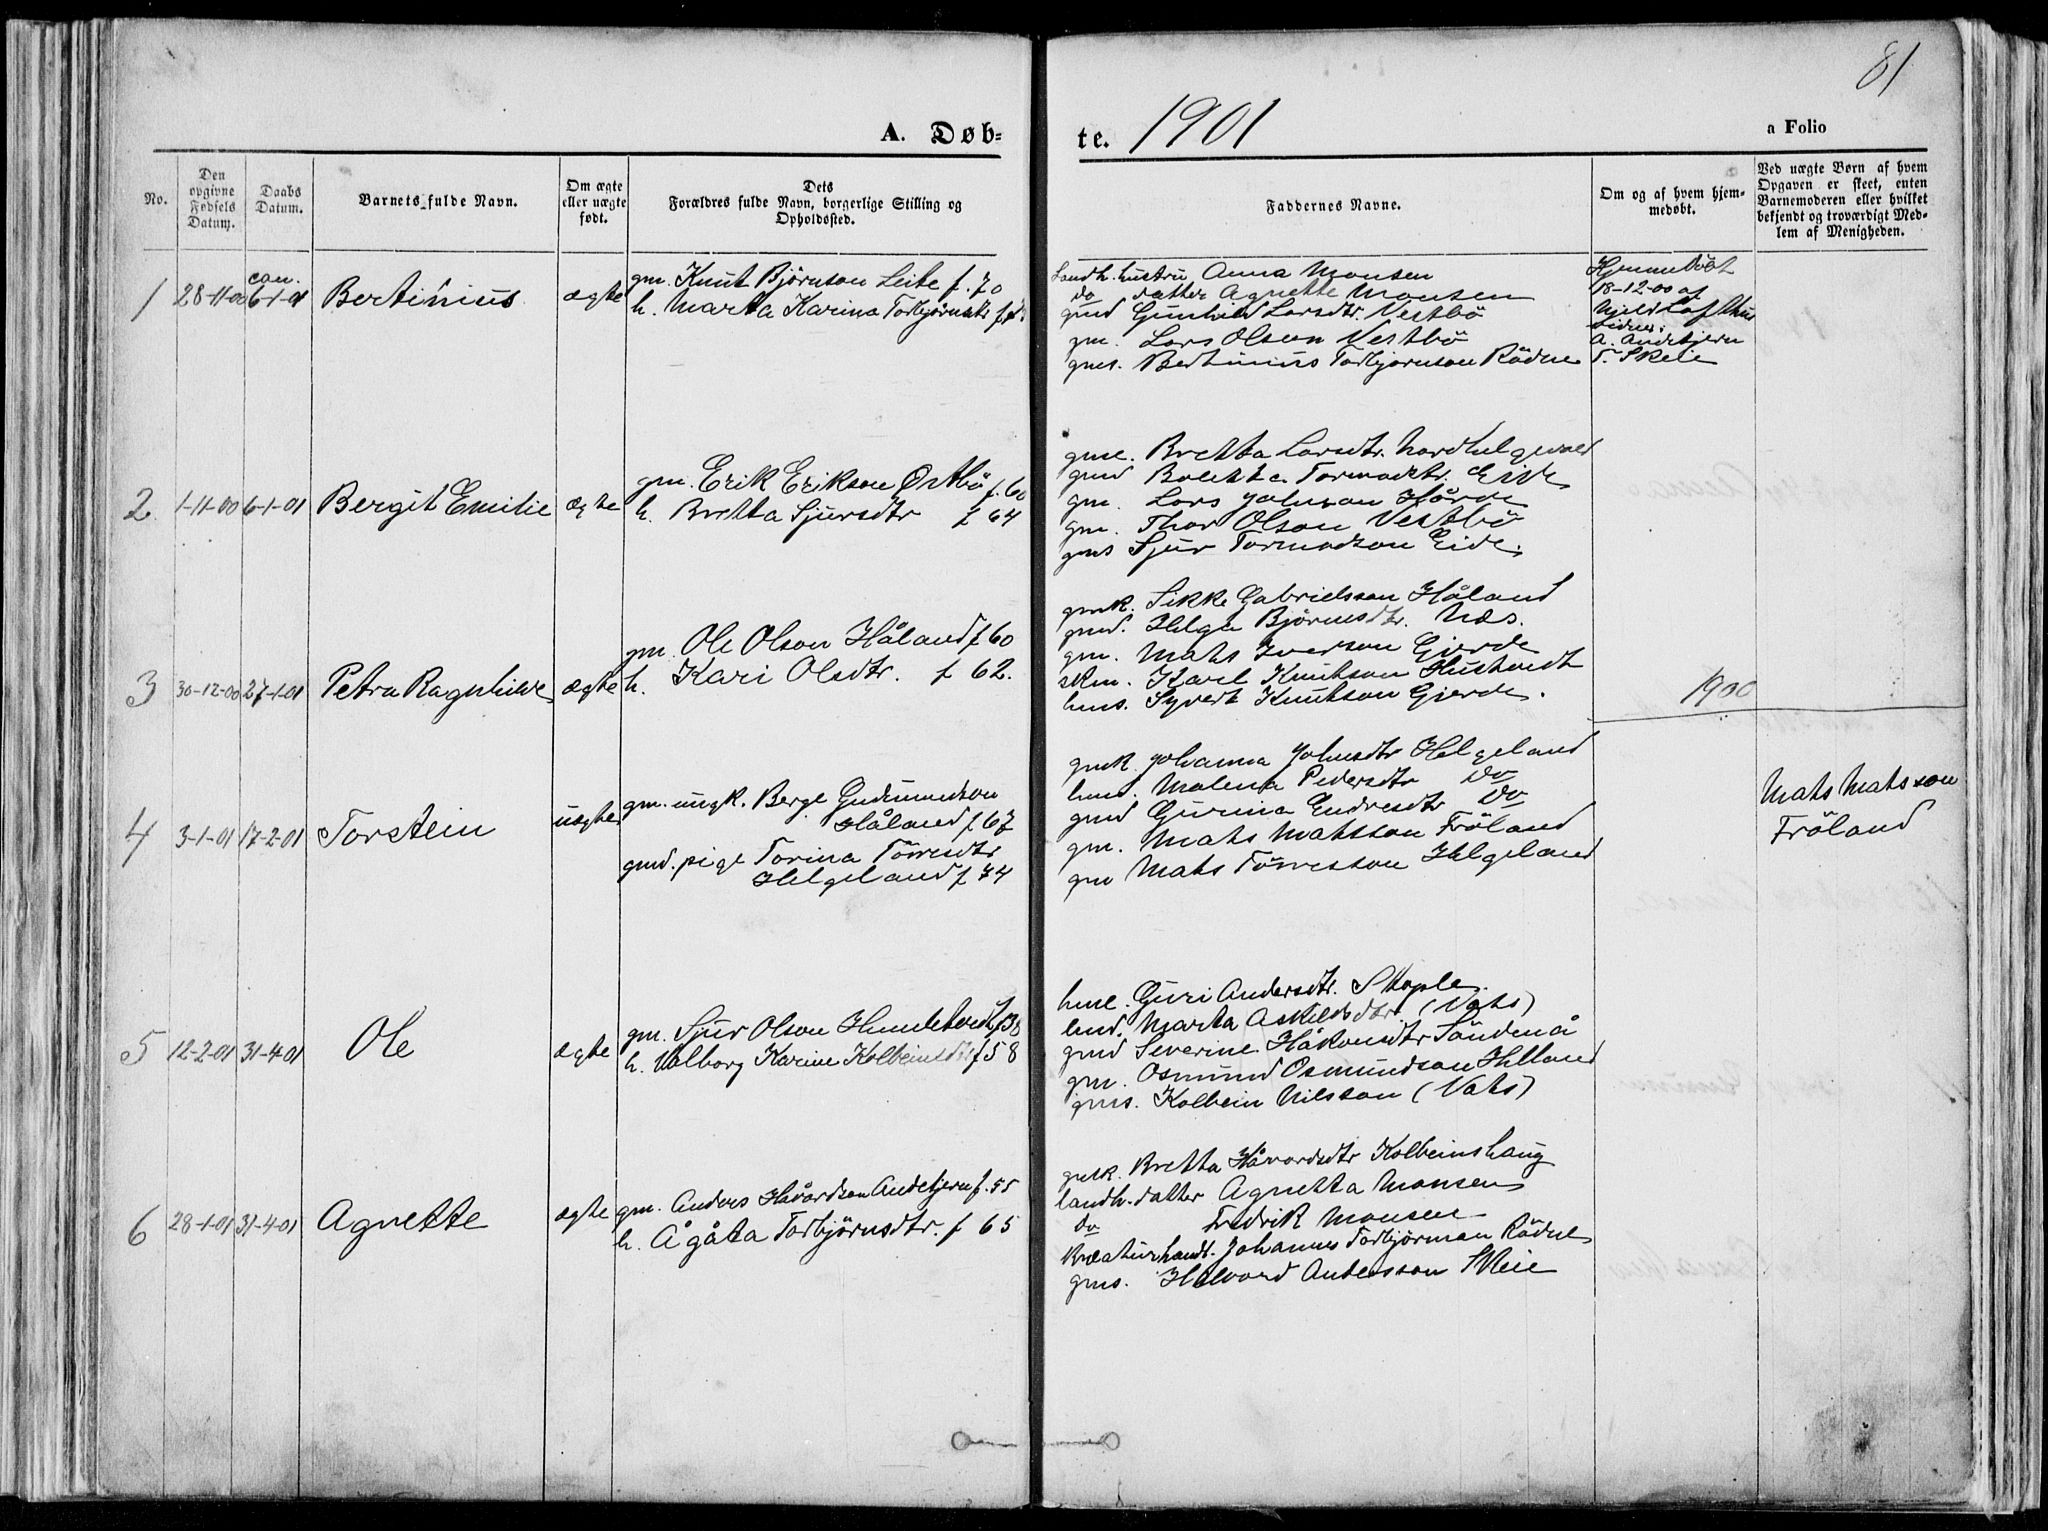 81
A. Døb-
te. 1901
a Folio
No.
Den opgivne Fødsels Datum.
Daabs Datum.
Barnets fulde Navn.
Om ægte eller uægte født.
Dets
Forældres fulde Navn, borgerlige Stilling og
Opholdssted.
Faddernes Navne.
Om og af hvem hjem-
medøbt.
Ved uægte Børn af hvem
Opgaven er skeet, enten
Barnemoderen eller hvilket
bekjendt og troværdigt Med-
lem af Menigheden.
1 28-11-00 6-1-01 Bertinius ægte
gm. Knut Björnson Leite f. 70
h. Marta Karina Torbjörnsdtr
Landh. hustru Anna Monsen
do datter Agnette Monsen
gmd Gunhild Larsdtr. Vestbö
gm. Lars Olson Vestbö
gms. Bertinius Torbjörnson Rödne
Hjemmedöbt
18-12-00 af
Njeld Lofthus
A. Andetjern
T. Skeie
2 1-11-00 6-1-01 Bergit Emilie ægte
gm. Erik Erikson Østbö f. 60
h. Bretta Sjursdtr f 64
gme. Bretta Larsdtr.
gmd Boletta Tormodstr. Eide
gm. Lars Johnson Hårde
gm. Thor Olson Vestbö
gms Sjur Tormodson Eide.
3 30-12-00 27-1-01 Petra Ragnhilde ægte
gm. Ole Olson Håland f 60
h. Kari Olsdtr. f 62.
gmk. Sikke Gabrielsson Håland
gmd. Helga Björnsdtr. Næs.
gm. Mats Iverson Gjerde
skm. Karl Knutson Hustvedt
hms. Syvert Knutson Gjerde.
1900
4 3-1-01 17-2-01 Torstein uægte
gm. ungk. Berge Gudmundson
Håland f 67
gmd. pige Torina Törresdtr
Helgeland f 74
gmk. Johanna Johnsdtr Helgeland
hmd. Malena Pedersdtr do
gmd Gurina Endresdtr do
gm. Mats Matsson Fröland
gm Mats Törresson Helgeland
Mats Matsson
Fröland
5 12-2-01 31-4-01 Ole ægte
gm. Sjur Olson Hundetvedt f 38
h. Valborg Karine Kolbeinsdtr f 58
hme. Guri Andersdtr. Stople
lmd. Marta Askildsdtr (Vats)
gmd Severine Håkonsdtr Söndenå
gm. Osmund Osmundson Helland
gms. Kolbein Nilsson (Vats)
6 28-1-01 31-4-01 Agnette ægte
gm. Anders Håvardson Andetjern f. 55
h. Ågåta Torbjörnsdtr. f 65
gmk. Bretta Håvardsdtr Kolbeinshaug
landh. datter Agnetta Monsen
do Fredrik Monsen
Kreaturhandl. Johannes Torbjörnson Rödne
gms. Halvard Andersson Skeie